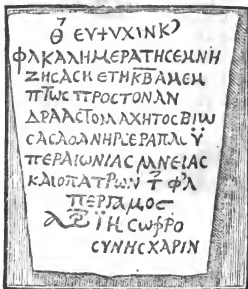 Θ̄ ΕΥΤΥΧΙΝΚ
ΦΛΚΑΛΗΜΕΡΑΤΗϹΕΜΝΗ
ΖΗϹΑϹΗ ΕΤΗΚ̄Β̄ΑΜΕΜ
ΠΤωϹ ΠΡΟϹΤΟΝΑΝ
ΔΡΑΑϹΤΟΜΑΧΗΤΟϹΒΙω
ϹΑϹΑΟΑΝΗΡΙΕΡΑΠΛΙ Ϋ
ΠΕΡΑΙωΝΙΑϹΜΝΕΙΑϹ
ΚΑΙΟΠΑΤΡωΝ Τ̄ ΦΛ
ΠΕΡΓΑΜΟϹ
ΪΗϹ ϹωΦΡΟ
ϹΥΝΗϹ ΧΑΡΙΝ